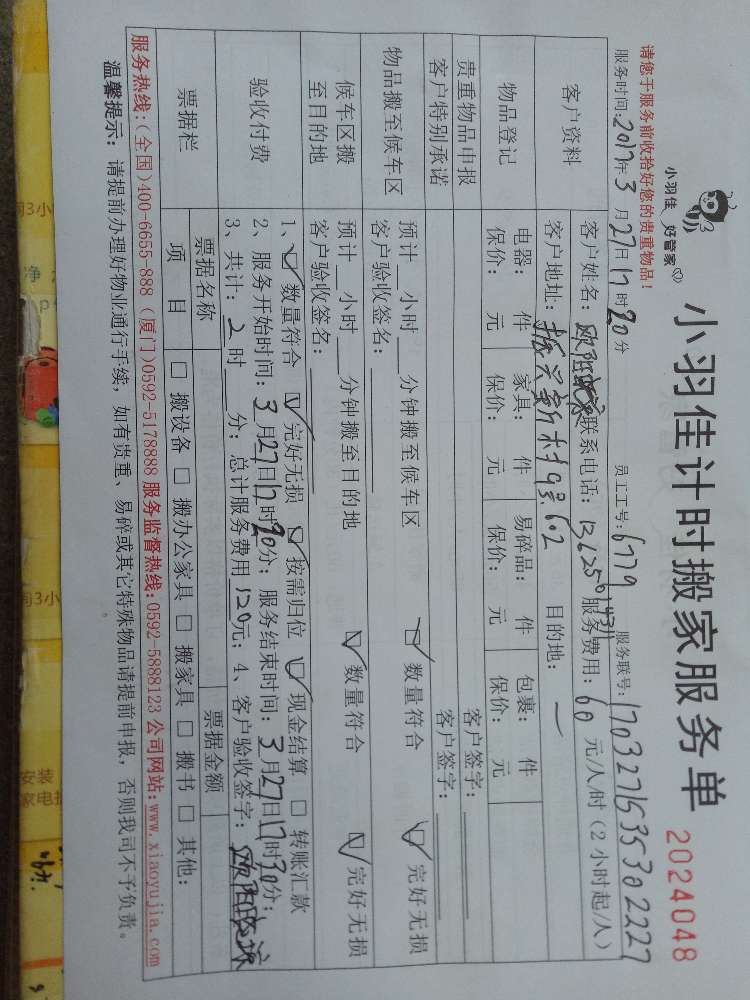 小羽佳 好管家
小羽佳计时搬家服务单 2024048
请您于服务前收拾好您的贵重物品!
服务时间:2017年3月27日17时20分 员工工号:6779 服务联号:1703271535302227
客户资料
客户姓名:欧阳 联系电话: 服务费用:60元/人/时(2小时起/人)
客户地址:振兴新村93.602 目的地:一
物品登记
电器: 件 家具: 件 易碎品: 件 包裹: 件
保价: 元 保价: 元 保价: 元 保价: 元
贵重物品申报 客户签字:
客户特别承诺 客户签字:
物品搬至候车区
预计 小时 分钟搬至候车区 数量符合 完好无损
客户验收签名:
候车区搬至目的地
预计 小时 分钟搬至目的地 数量符合 完好无损
客户验收签名:
验收付费
1、数量符合 完好无损 按需归位 现金结算 转账汇款
2、服务开始时间:3月27日17时20分;服务结束时间:3月27日17时30分;
3、共计:2时 分;总计服务费用120元;4、客户验收签字:欧阳
票据栏
票据名称 票据金额
项目 搬设备 搬办公家具 搬家具 搬书 其他:
服务热线:(全国)400-6655-888 (厦门)0592-5178888 服务监督热线:0592-5888123 公司网站:www.xiaoyujia.com
温馨提示:请提前办理好物业通行手续,如有贵重、易碎或其它特殊物品请提前申报,否则我司不予负责。